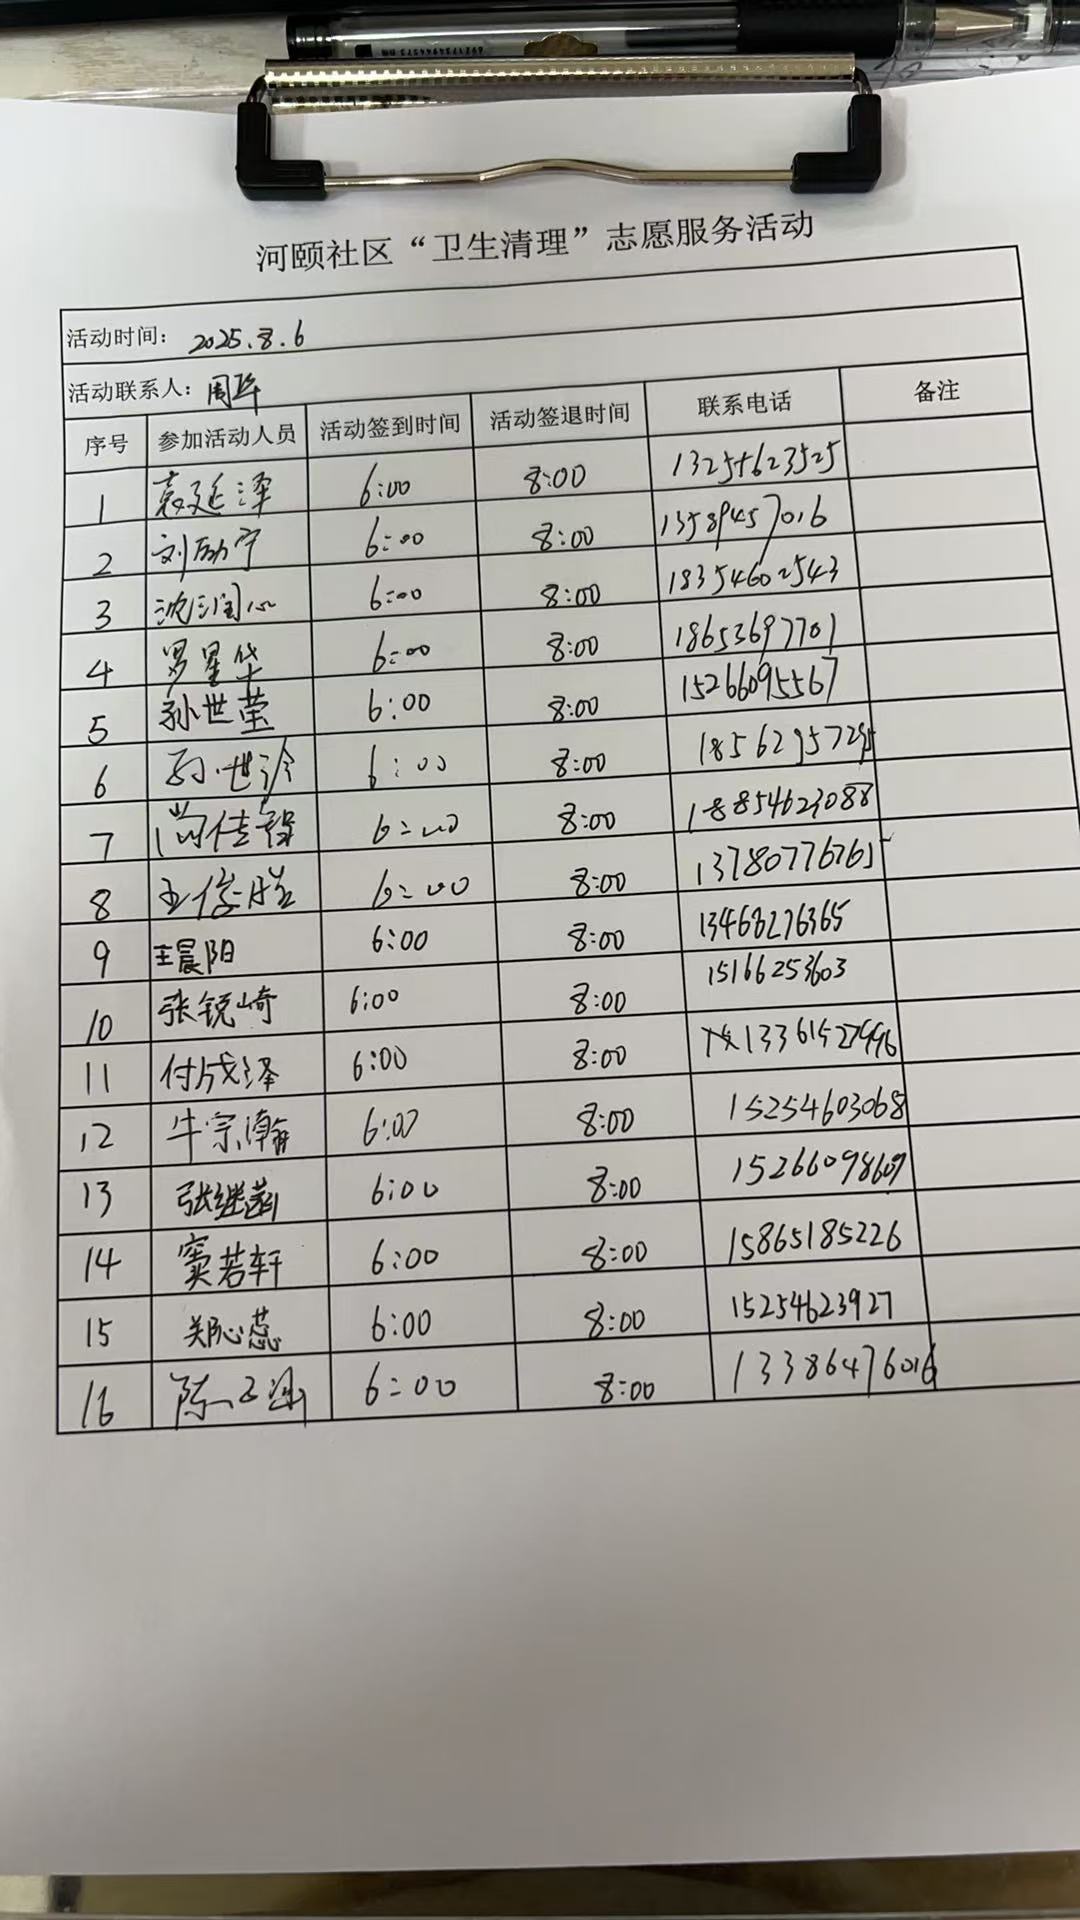 河颐社区“卫生清理”志愿服务活动
活动时间： 2025.8.6
活动联系人：周华
序号 参加活动人员 活动签到时间 活动签退时间 联系电话 备注
1 袁延泽 6:00 8:00 13254623525
2 刘励宁 6:00 8:00 13589457016
3 沈润心 6:00 8:00 18354602543
4 罗星华 6:00 8:00 18653697701
5 孙世莹 6:00 8:00 15266095567
6 孙世泠 6:00 8:00 18562957295
7 尚佳锦 6:00 8:00 18854623088
8 王俊皓 6:00 8:00 13780776765
9 王晨阳 6:00 8:00 13468276365
10 张锐崎 6:00 8:00 15166253603
11 付成泽 6:00 8:00 13361527996
12 牛宗瀚 6:00 8:00 15254603068
13 张继菡 6:00 8:00 15266098609
14 窦若轩 6:00 8:00 15865185226
15 郑心蕊 6:00 8:00 15254623927
16 陈子涵 6:00 8:00 13386476016